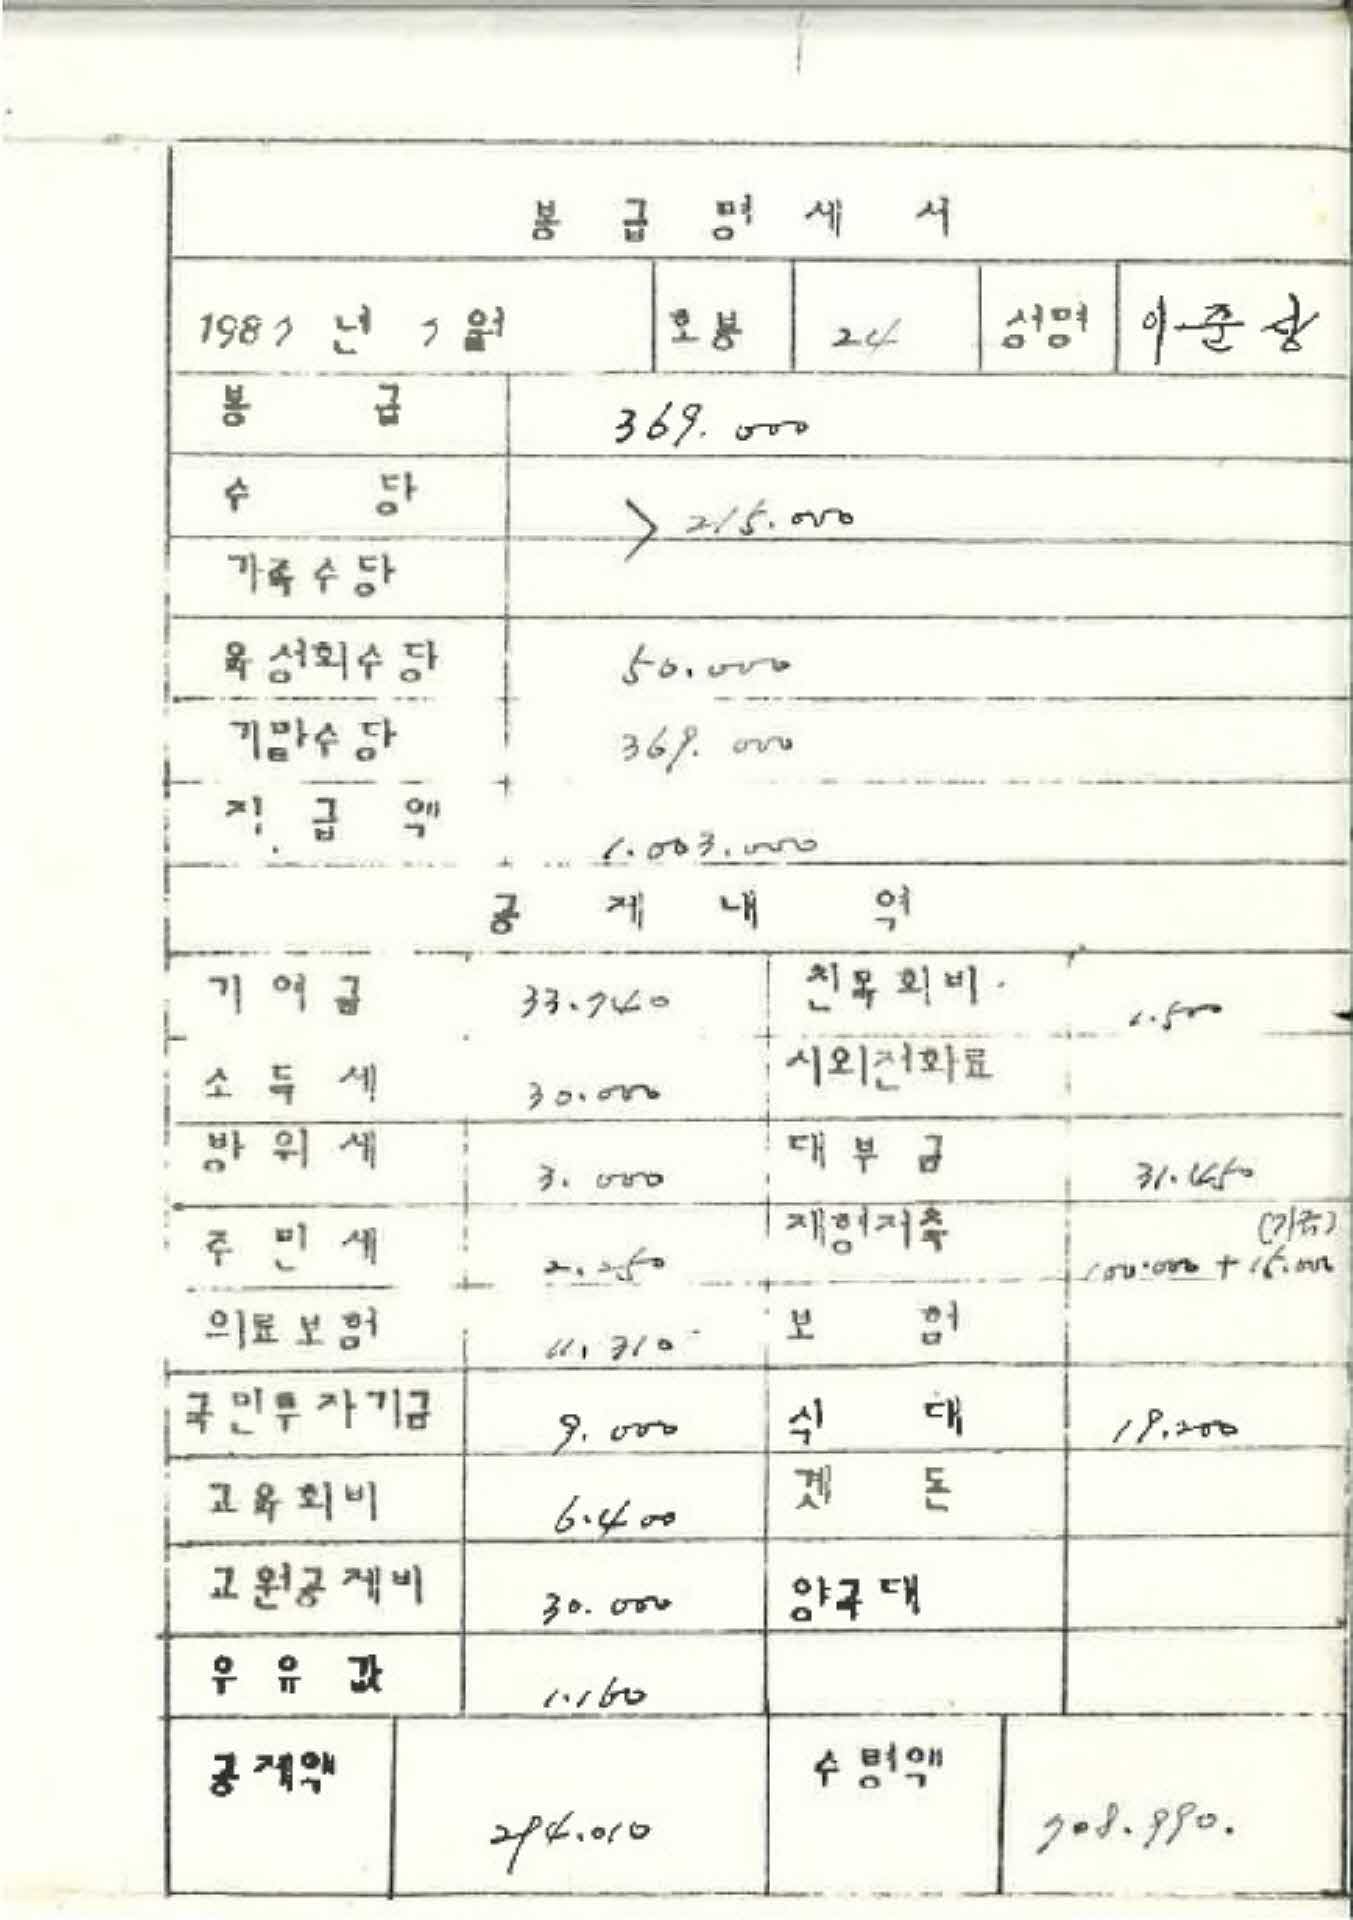 봉급명세서
1987년 7월 호봉 24 성명 이준상
봉급 369.000
수당 > 215.000
가족수당
육성회수당 50.000
기말수당 369.000
지급액 1.003.000
공제내역
기여금 33.740 친목회비 1.500
소득세 30.000 시외전화료
방위세 3.000 대부금 31.450
주민세 2.250 재형저축 (가족) 100.000 + 15.000
의료보험 11.310 보험
국민투자기금 9.000 식대 19.200
교육회비 6.400 곗돈
교원공제비 30.000 양곡대
우유값 1.160
공제액 294.010 수령액 708.990.